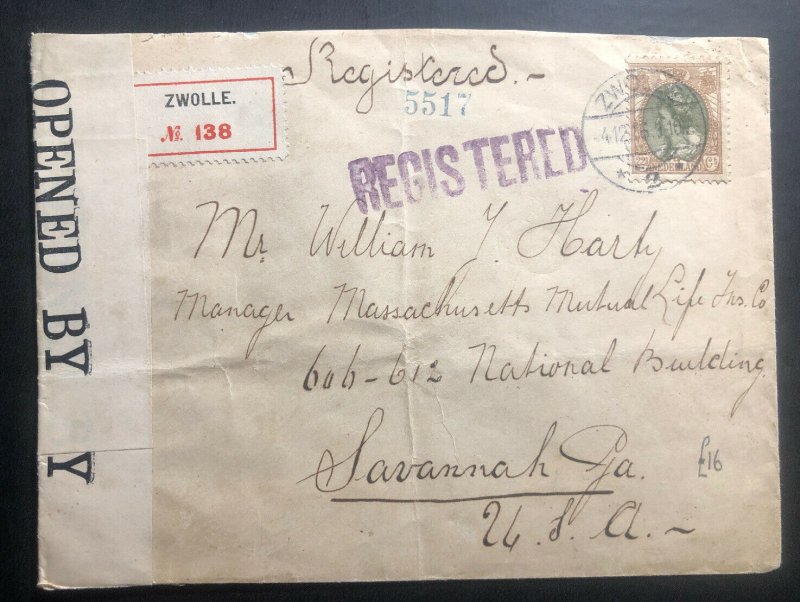 OPENED BY
Y
ZWOLLE.
No. 138
Registered.-
5517
REGISTERED
4.12
2
NEDERLAND
Mr. William J. Harty
Manager Massachusetts Mutual Life Ins. Co
606-612 National Building
Savannah Ga.
U.S.A.-
£16